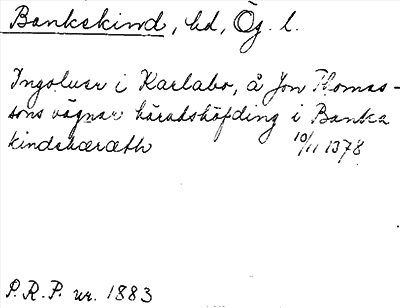 Bankekind, hd, Ög. l.
Ingolver i Karlabo, å Jon Thomas-
sons vägnar häradshöfding i Banka
kindshæræth 10/11 1378
P.R.P. nr. 1883